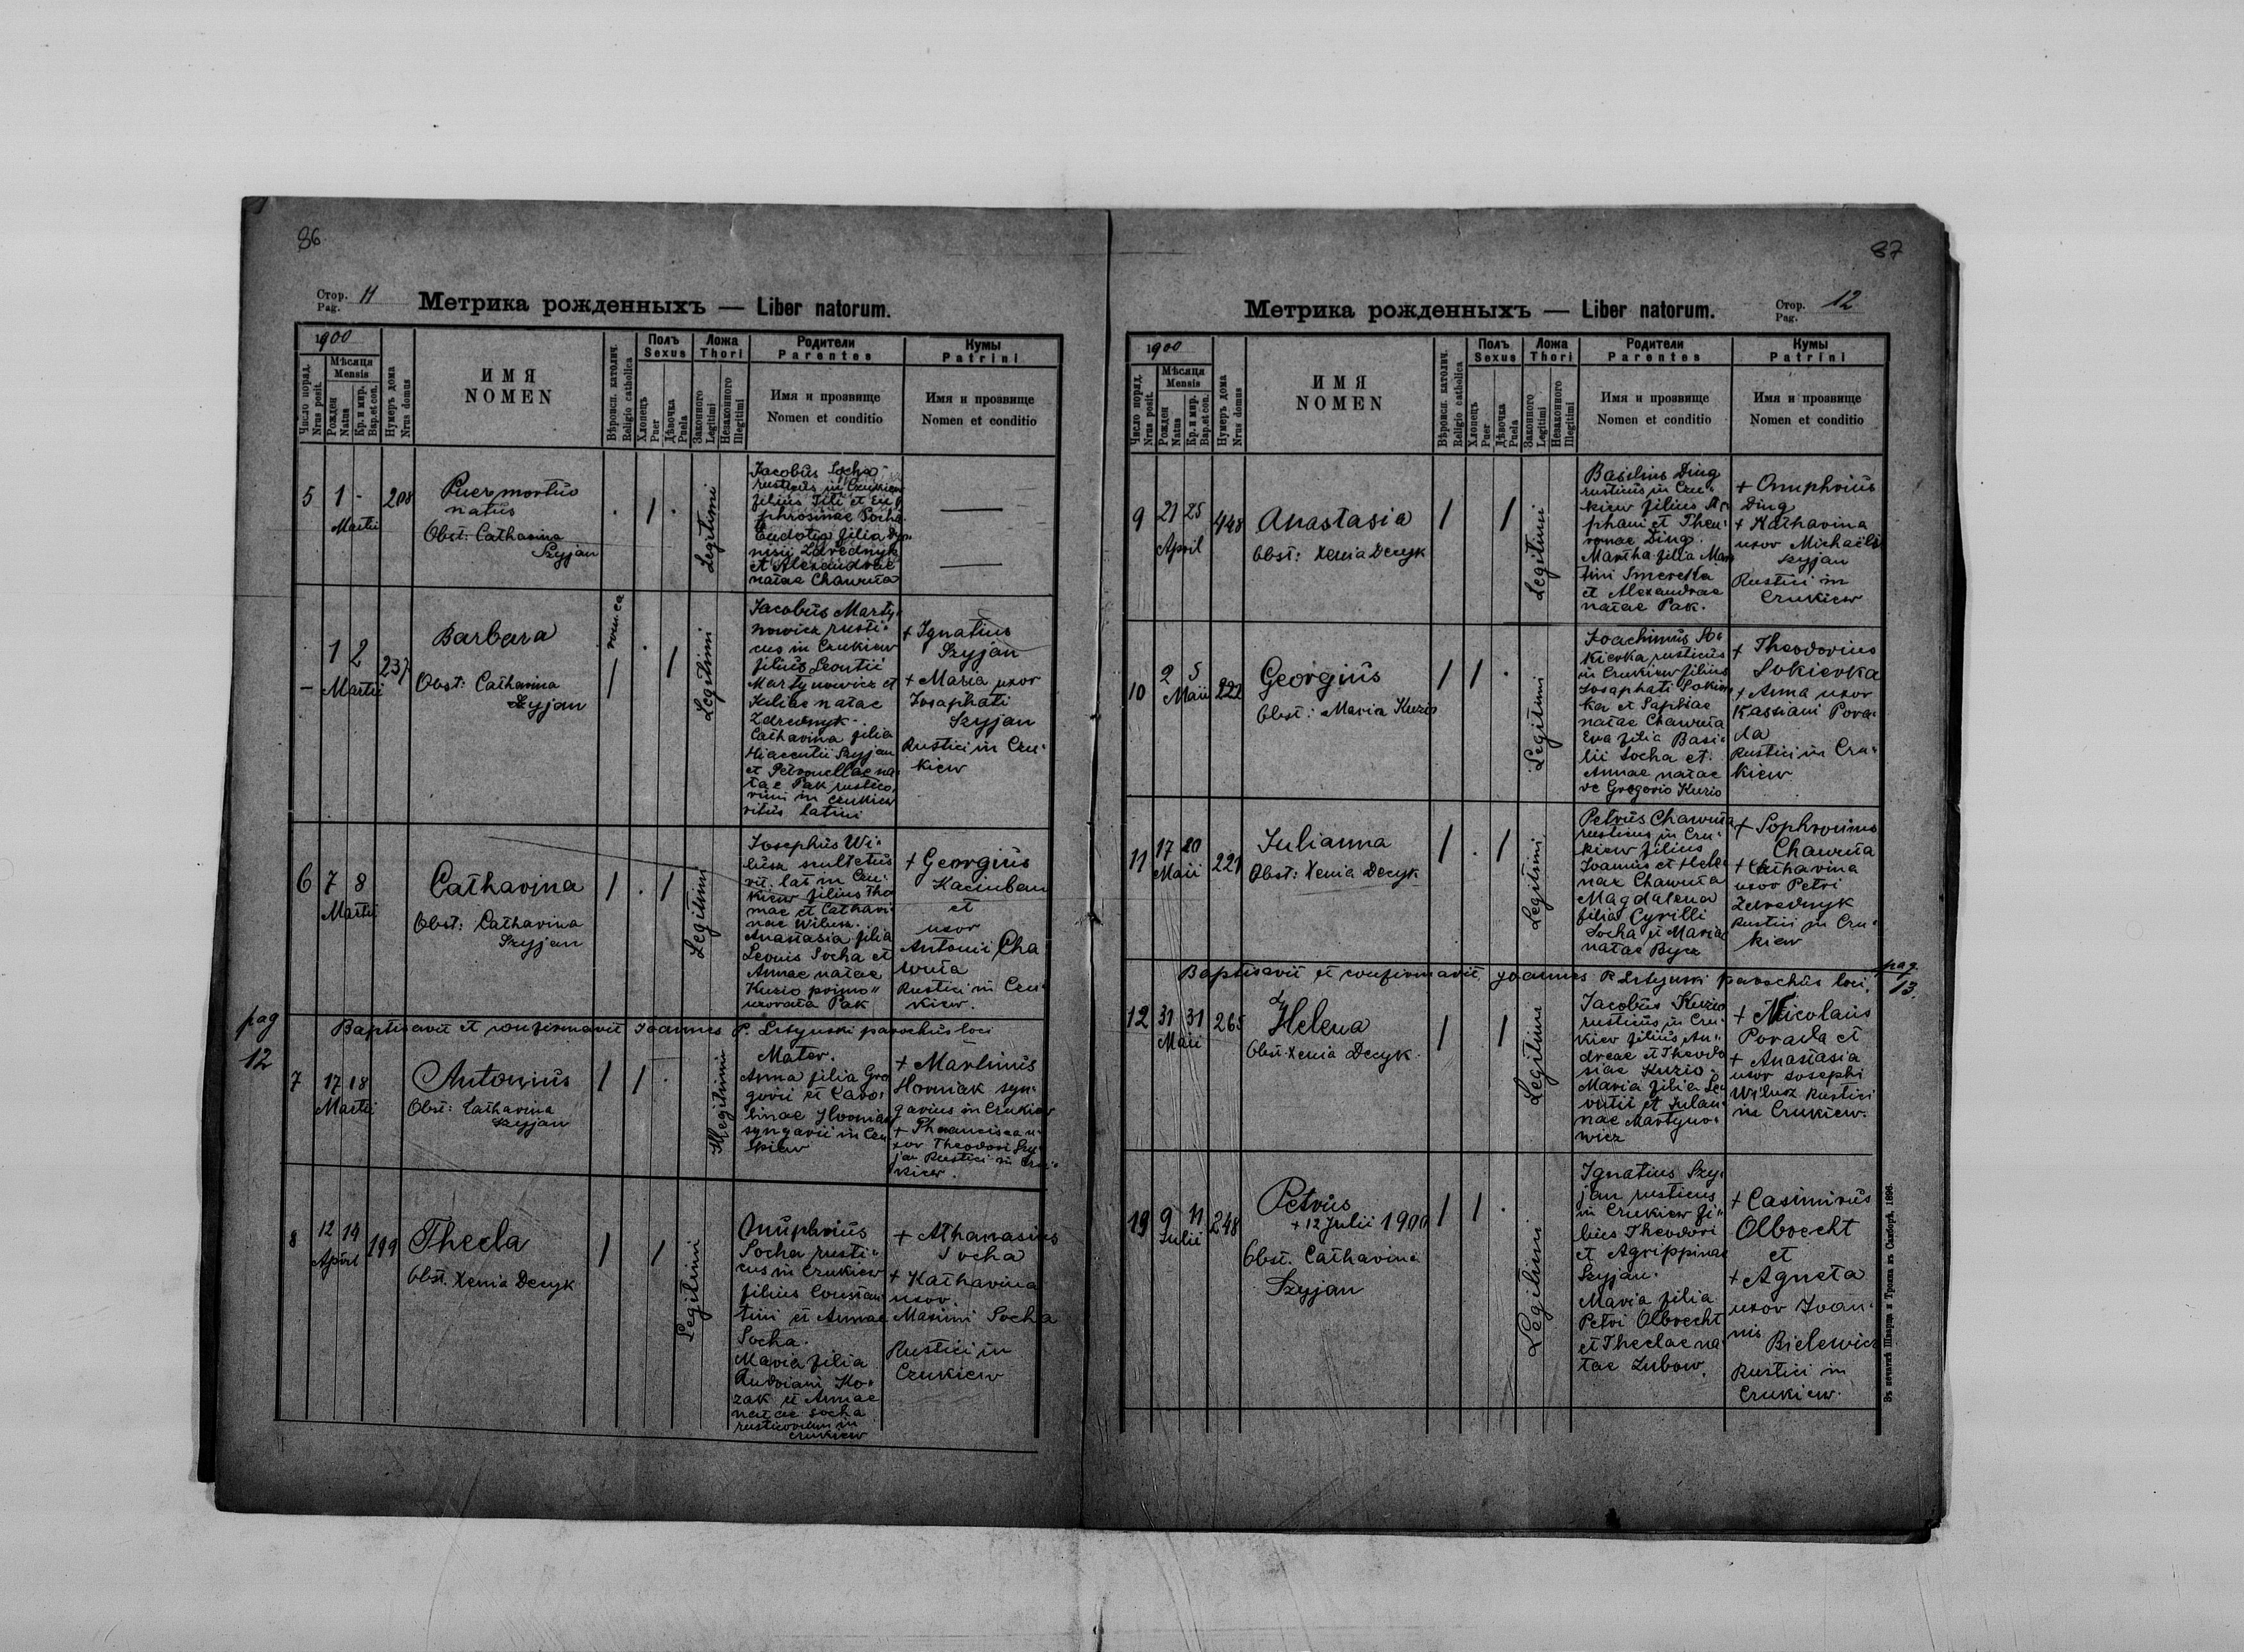 86
Стор. 11
Pag.
Метрика рожденныхъ — Liber natorum.
1900
Число поряд.
Nrus posit.
Мѣсяца
Mensis
Рожден
Natus
Кр. и мир.
Bap. et con.
Нумеръ дома
Nrus domus
ИМЯ
NOMEN
Вѣроисп. католич.
Religio catholica
Полъ
Sexus
Хлопецъ
Puer
Дѣвочка
Puela
Ложа
Thori
Законного
Legitimi
Незаконного
Illegitimi
Родители
Parentes
Имя и прозвище
Nomen et conditio
Кумы
Patrini
Имя и прозвище
Nomen et conditio
5 1 - 208
Martii
Puer mortuo
natus
Obst: Catharina
Szyjan
Legitimi
Jacobus Socha
rusticus in Czukiew
filius Titi et Eu
phrosinae Socha
Eudotia filia Dyo
nisii Zdrednyk
et Alexandrae
natae Chawuta
- 1 2 237
Martii
Barbara
Obst: Catharina
Szyjan
Legitimi
Jacobus Marty
nowicz rusti
cus in Czukiew
filius Leontii
Martynowicz et
Juliae natae
Zdrednyk
Catharina filia
Hiacentii Szyjan
et Petronellae na
tae Pak rustico
rum in Czukiew
ritus latini
+ Ignatius
Szyjan
+ Maria uxor
Josaphati
Szyjan
Rustici in Czu
kiew
6 7 8
Martii
Catharina
Obst: Catharina
Szyjan
Legitimi
Josephus Wi
lusz
rit. lat in Czu
kiew filius Tho
mae et Cathari
nae Wilusz
Anastasia filia
Leonis Socha et
Annae natae
Kuzio primo
uxorata Pak
+ Georgius
Kaciuban
et
uxor
Antonii Cha
wuta
Rustici in Czu
kiew.
pag
12
Baptisavit et confirmavit Joannes P. Litynski parochus loci
7 17 18
Martii
Antonius
Obst: Catharina
Szyjan
Illegitimi
Mater.
Anna filia Gre
gorii et Caro
linae Horniak
syngarii in Czu
kiew
+ Martinus
Horniak syn
garius in Czukiew
+ Phrancisca u
xor Theodori Szy
jan Rustici in Czu
kiew.
8 12 14 199
April
Thecla
Obst. Xenia Decyk
Legitimi
Onuphrius
Socha rusti
cus in Czukiew
filius Constan
tini et Annae
Socha.
Maria filia
Andriani Ko
zak et Annae
natae Socha
rusticorum in
Czukiew
+ Athanasius
Socha
+ Katharina
uxor
Maximi Socha
Rustici in
Czukiew
87
Метрика рожденныхъ — Liber natorum.
Стор. 12
Pag.
1900
Число поряд.
Nrus posit.
Мѣсяца
Mensis
Рожден
Natus
Кр. и мир.
Bap. et con.
Нумеръ дома
Nrus domus
ИМЯ
NOMEN
Вѣроисп. католич.
Religio catholica
Полъ
Sexus
Хлопецъ
Puer
Дѣвочка
Puela
Ложа
Thori
Законного
Legitimi
Незаконного
Illegitimi
Родители
Parentes
Имя и прозвище
Nomen et conditio
Кумы
Patrini
Имя и прозвище
Nomen et conditio
9 21 25 448
April
Anastasia
Obst: Xenia Decyk
Legitimi
Basilius Ding
rusticus in Czu
kiew filius
phani et Theu
ronae Ding.
Martha filia Mar
tini Smereka
et Alexandrae
natae Pak.
+ Onuphrius
Ding
+ Katharina
uxor Michaëli
Szyjan
Rustici in
Czukiew
10 2 5 222
Maii
Georgius
Obst: Maria Kuzio
Legitimi
Joachimus So
kierka rusticus
in Czukiew filius
Josaphati Sokier
ka et Sophiae
natae Chawuta
Eva filia Basi
lii Socha et
Annae natae
de Gregorio Kuzio
+ Theodorius
Sokierka
+ Anna uxor
Kassiani Pora
da
Rustici in Czu
kiew
11 17 20 221
Maii
Julianna
Obst: Xenia Decyk
Legitimi
Petrus Chawuta
rusticus in Czu
kiew filius
Joannis et Hele
nae Chawuta
Magdalena
filia Cyrilli
Socha et Mariae
natae Bycz
+ Sophronius
Chawuta
+ Catharina
uxor Petri
Zdrednyk
Rustici in Czu
kiew
Baptisavit et confirmavit Joannes P. Litynski parochus loci.
pag
13.
12 31 31 265
Maii
Helena
Obst. Xenia Decyk.
Legitimi
Jacobus Kuzio
rusticus in Czu
kiew filius An
dreae et Theodo
siae Kuzio.
Maria filia Le
ontii et Julian
nae Martyno
wicz
+ Nicolaus
Porada et
+ Anastasia
uxor Josephi
Wilusz Rustici
in Czukiew.
13 9 11 248
Julii
Petrus
+ 12 Julii 1900
Obst. Catharina
Szyjan
Legitimi
Ignatius Szy
jan rusticus
in Czukiew fi
lius Theodori
et Agrippinae
Szyjan.
Maria filia
Petri Olbrecht
et Theclae na
tae Zubow.
+ Casimirus
Olbrecht
et
+ Agneta
uxor Joan
nis Bielewicz
Rustici in
Czukiew.
Въ печатнѣ Шварца и Трояна въ Самборѣ, 1896.